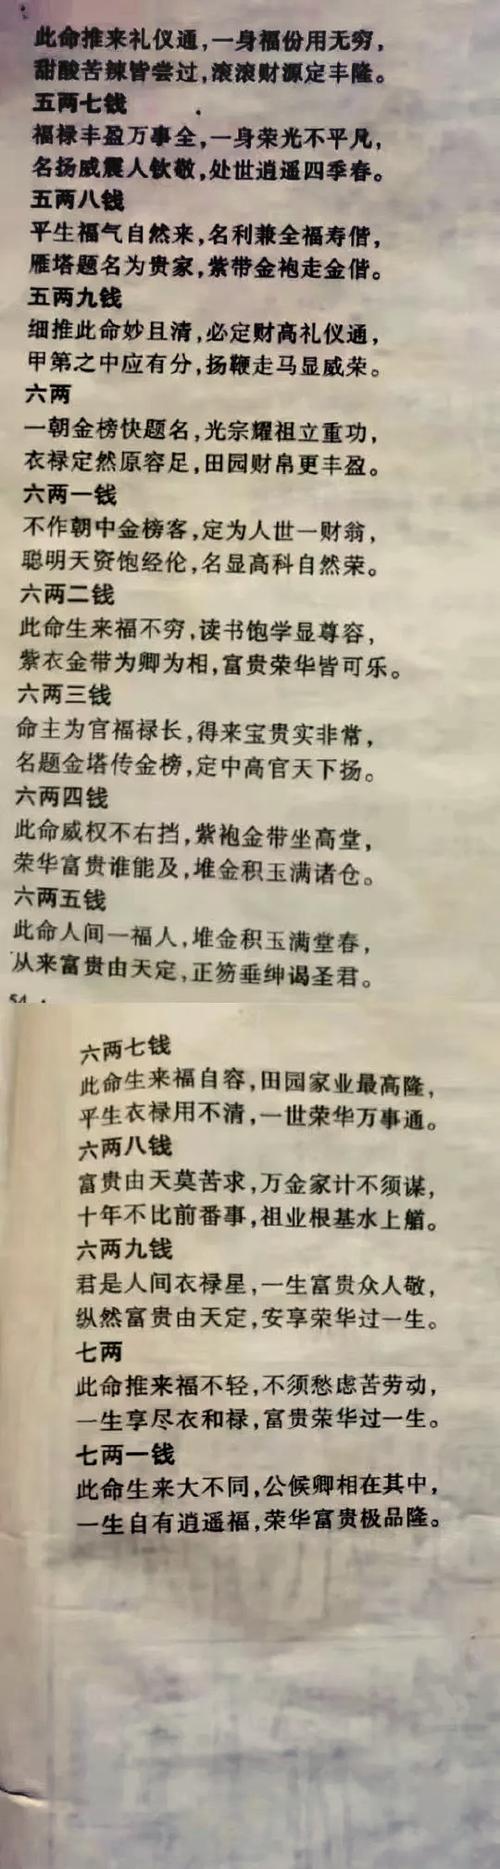 此命推来礼仪通,一身福份用无穷,
甜酸苦辣皆尝过,滚滚财源定丰隆。
五两七钱
福禄丰盈万事全,一身荣光不平凡,
名扬威震人钦敬,处世逍遥四季春。
五两八钱
平生福气自然来,名利兼全福寿偕,
雁塔题名为贵家,紫带金袍走金偕。
五两九钱
细推此命妙且清,必定财高礼仪通,
甲第之中应有分,扬鞭走马显威荣。
六两
一朝金榜快题名,光宗耀祖立重功,
衣禄定然原容足,田园财帛更丰盈。
六两一钱
不作朝中金榜客,定为人世一财翁,
聪明天资饱经伦,名显高科自然荣。
六两二钱
此命生来福不穷,读书饱学显尊容,
紫衣金带为卿为相,富贵荣华皆可乐。
六两三钱
命主为官福禄长,得来宝贵实非常,
名题金塔传金榜,定中高官天下扬。
六两四钱
此命威权不右挡,紫袍金带坐高堂,
荣华富贵谁能及,堆金积玉满诸仓。
六两五钱
此命人间一福人,堆金积玉满堂春,
从来富贵由天定,正笏垂绅谒圣君。
54
六两七钱
此命生来福自容,田园家业最高隆,
平生衣禄用不清,一世荣华万事通。
六两八钱
富贵由天莫苦求,万金家计不须谋,
十年不比前番事,祖业根基水上艏。
六两九钱
君是人间衣禄星,一生富贵众人敬,
纵然富贵由天定,安享荣华过一生。
七两
此命推来福不轻,不须愁虑苦劳动,
一生享尽衣和禄,富贵荣华过一生。
七两一钱
此命生来大不同,公候卿相在其中,
一生自有逍遥福,荣华富贵极品隆。